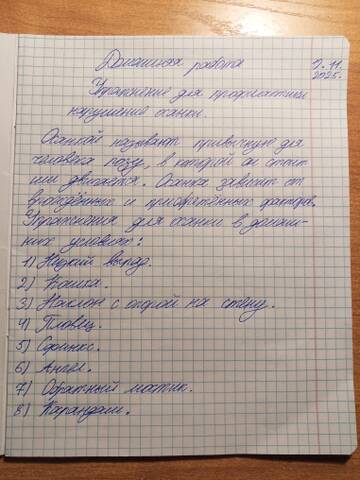 Домашняя работа
9.11.
2025.
Упражнение для профилактики
нарушение осанки.
Осанкой называют привычную для
человека позу, в которой он стоит
или двигается. Осанка зависит от
врождённых и приобретённых факторов.
Упражнения для осанки в домаш-
них условиях:
1) Низкий выпад.
2) Кошка.
3) Наклон с опорой на стену.
4) Пловец.
5) Сфинкс.
6) Ангел.
7) Обратный мостик.
8) Карандаш.